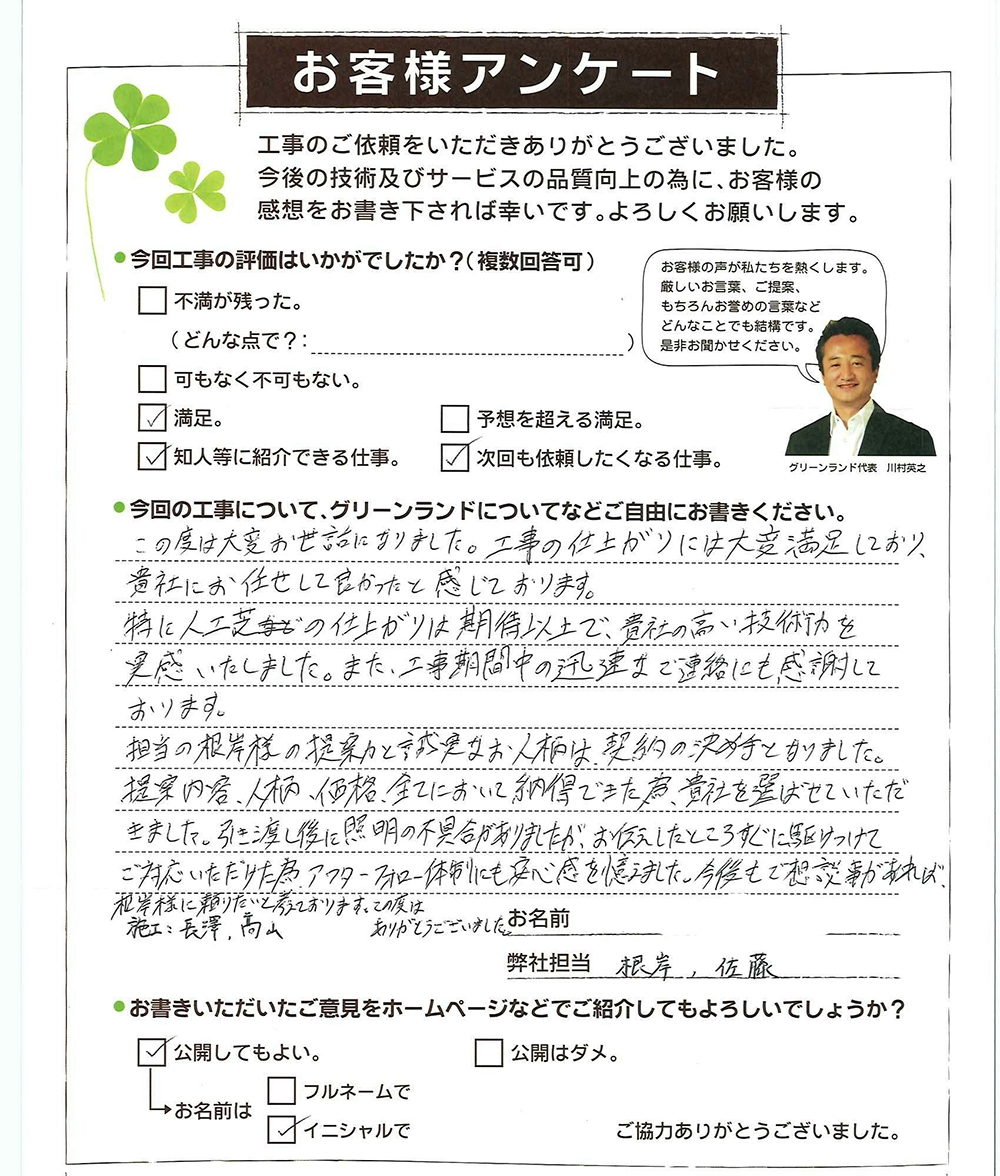 お客様アンケート
工事のご依頼をいただきありがとうございました。
今後の技術及びサービスの品質向上の為に、お客様の
感想をお書き下されば幸いです。よろしくお願いします。
●今回工事の評価はいかがでしたか？（複数回答可）
不満が残った。
（どんな点で？：　　　）
可もなく不可もない。
満足。
予想を超える満足。
知人等に紹介できる仕事。
次回も依頼したくなる仕事。
お客様の声が私たちを熱くします。
厳しいお言葉、ご提案、
もちろんお誉めの言葉など
どんなことでも結構です。
是非お聞かせください。
グリーンランド代表　川村英之
●今回の工事について、グリーンランドについてなどご自由にお書きください。
この度は大変お世話になりました。工事の仕上がりには大変満足しており、
貴社にお任せして良かったと感じております。
特に人工芝の仕上がりは期待以上で、貴社の高い技術力を
実感いたしました。また、工事期間中の迅速なご連絡にも感謝して
おります。
担当の根岸様の提案力と誠実なお人柄は、契約の決め手となりました。
提案内容、人柄、価格、全てにおいて納得できた為、貴社を選ばせていただ
きました。引き渡し後に照明の不具合がありましたが、お伝えしたところすぐに駆けつけて
ご対応いただけた為、アフターフォロー体制にも安心感を憶えました。今後もご相談事があれば、
根岸様に頼りたいと考えております。この度は
ありがとうございました。
施工：長澤，高山
お名前
弊社担当　根岸，佐藤
●お書きいただいたご意見をホームページなどでご紹介してもよろしいでしょうか？
公開してもよい。
公開はダメ。
お名前は
フルネームで
イニシャルで
ご協力ありがとうございました。